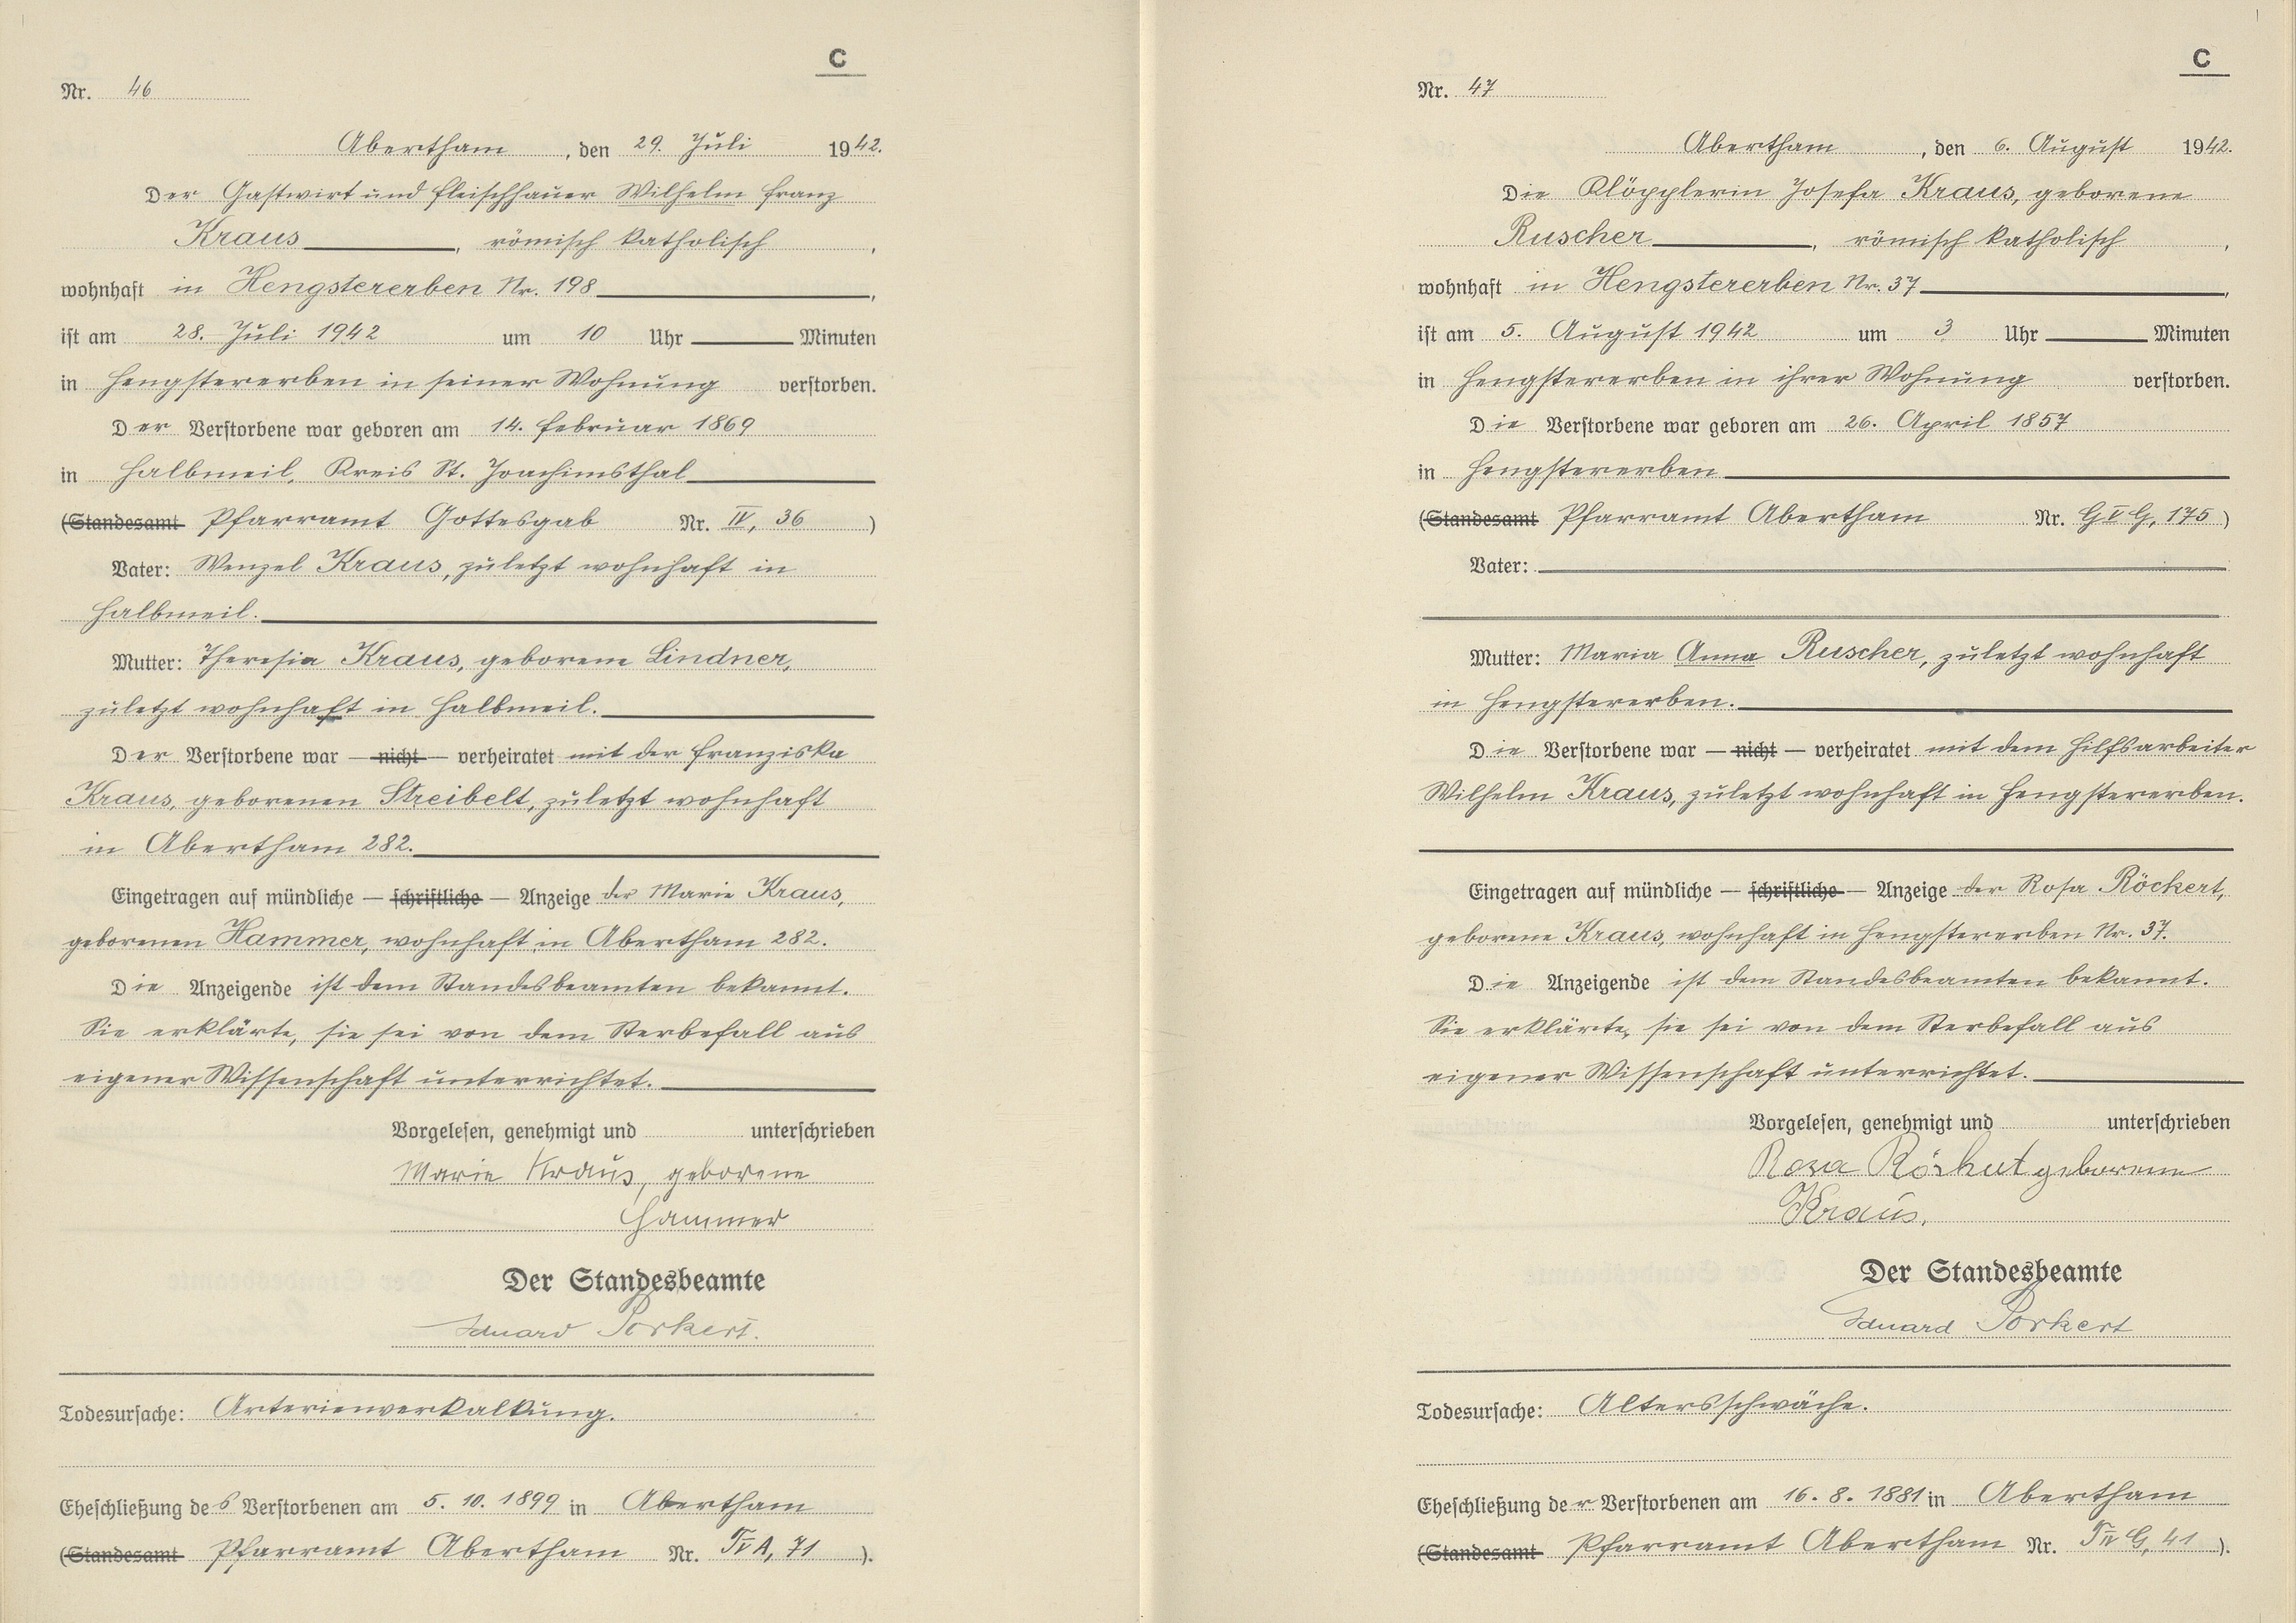 C
Nr. 46
Abertham, den 29. Juli 1942.
Der Gastwirt und Fleischhauer Wilhelm Franz
Kraus, römisch katholisch,
wohnhaft in Hengstererben Nr. 198,
ist am 28. Juli 1942 um 10 Uhr Minuten
in Hengstererben in seiner Wohnung verstorben.
Der Verstorbene war geboren am 14. Februar 1869
in Halbmeil, Kreis St. Joachimsthal
(Standesamt Pfarramt Gottesgab Nr. IV, 36)
Vater: Wenzel Kraus, zuletzt wohnhaft in
Halbmeil.
Mutter: Theresia Kraus, geborene Lindner,
zuletzt wohnhaft in Halbmeil.
Der Verstorbene war — nicht — verheiratet mit der Franziska
Kraus, geborenen Streibelt, zuletzt wohnhaft
in Abertham 282.
Eingetragen auf mündliche — schriftliche — Anzeige der Marie Kraus,
geborenen Hammer, wohnhaft in Abertham 282.
Die Anzeigende ist dem Standesbeamten bekannt.
Sie erklärte, sie sei von dem Sterbefall aus
eigener Wissenschaft unterrichtet.
Vorgelesen, genehmigt und unterschrieben
Marie Kraus, geborene
Hammer
Der Standesbeamte
Eduard Porkert.
Todesursache: Arterienverkalkung.
Eheschließung des Verstorbenen am 5. 10. 1899 in Abertham
(Standesamt Pfarramt Abertham Nr. TV A, 71).
C
Nr. 47
Abertham, den 6. August 1942.
Die Klöpplerin Josefa Kraus, geborene
Ruscher, römisch katholisch,
wohnhaft in Hengstererben Nr. 37,
ist am 5. August 1942 um 3 Uhr Minuten
in Hengstererben in ihrer Wohnung verstorben.
Die Verstorbene war geboren am 26. April 1857
in Hengstererben
(Standesamt Pfarramt Abertham Nr. G V G, 175)
Vater:
Mutter: Maria Anna Ruscher, zuletzt wohnhaft
in Hengstererben.
Die Verstorbene war — nicht — verheiratet mit dem Hilfsarbeiter
Wilhelm Kraus, zuletzt wohnhaft in Hengstererben.
Eingetragen auf mündliche — schriftliche — Anzeige der Rosa Röckert,
geborene Kraus, wohnhaft in Hengstererben Nr. 37.
Die Anzeigende ist dem Standesbeamten bekannt.
Sie erklärte, sie sei von dem Sterbefall aus
eigener Wissenschaft unterrichtet.
Vorgelesen, genehmigt und unterschrieben
Rosa geborene
Kraus.
Der Standesbeamte
Eduard Porkert
Todesursache: Altersschwäche.
Eheschließung der Verstorbenen am 16. 8. 1881 in Abertham
(Standesamt Pfarramt Abertham Nr. T IV G, 41).